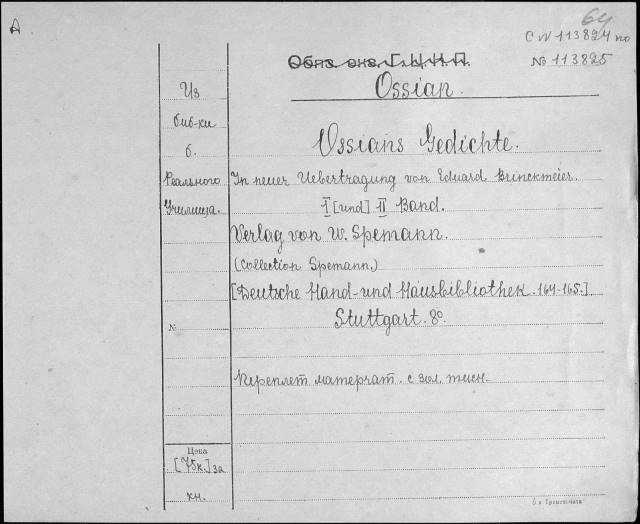 A
64
С № 113824 по
№ 113825
Обяз. экз. Г.Ц.К.П.
Ossian.
Из
биб-ки
б.
Реального
Училища.
Ossians Gedichte.
In neuer Uebertragung von Eduard Brinckmeier.
I [und] II Band.
Verlag von W. Spemann.
(Collection Spemann.)
[Deutsche Hand- und Hausbibliothek. 164-165.]
Stuttgart. 8º.
№
Переплет матерчат. с зол. тисн.
Цена
[75к.] за
кн.